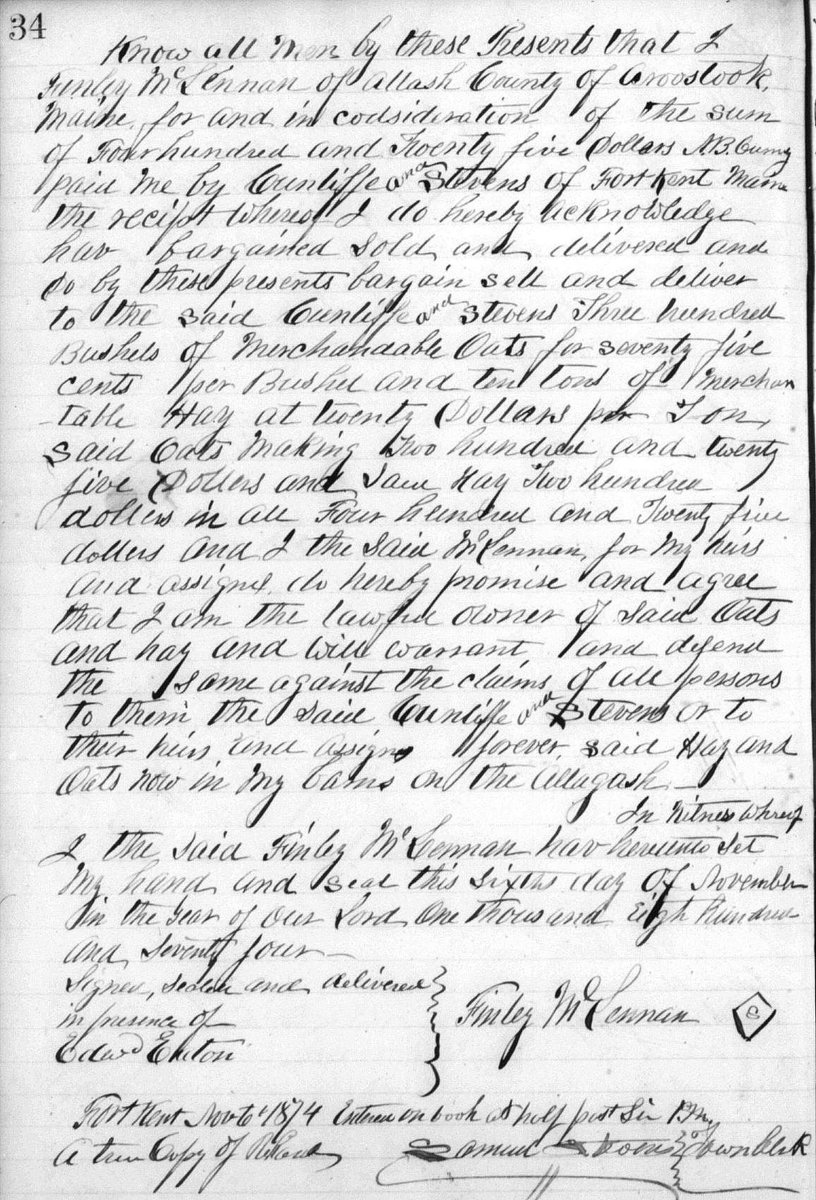 34
Know all Men by these Presents that I
Finley McLennan of allash County of Aroostook,
Maine, for and in codsideration of the sum
of Four hundred and Twenty five Dollars
paid me by Cunliffe and Stevens of Fort Kent Maine
the recipt whereof I do hereby acknowledge
hav bargained sold and delivered and
do by these presents bargain sell and deliver
to the said Cunliffe and Stevens Three hundred
Bushels of Merchandable Oats for seventy five
cents per Bushel and ten tons of merchan
-table Hay at twenty Dollars per Ton,
said Oats making Two hundred and twenty
five Dollers and Hay Two hundred
dollers in all Four hundred and Twenty five
dollers and I the said McLennan, for my heirs
and assigns do hereby promise and agree
that I am the lawful owner of said Oats
and hay and will warrant and defend
the same against the claims of all persons
to them the said Cunliffe and Stevens or to
their heirs and assigns forever said Hay and
Oats now in my barns on the Allagash —
In Witness whreof
I the said Finley McLennan hav hereunto set
my hand and seal this sixth day of November
in the year of our Lord One thousand Eigh hundred
and seventy four —
Signed, sealed and delivered
in presence of
Finley McLennan S
Fort Kent Nov 6th 1874 Entered on book at half past Six P.M.
A true Copy of Record Samuel Town Clerk